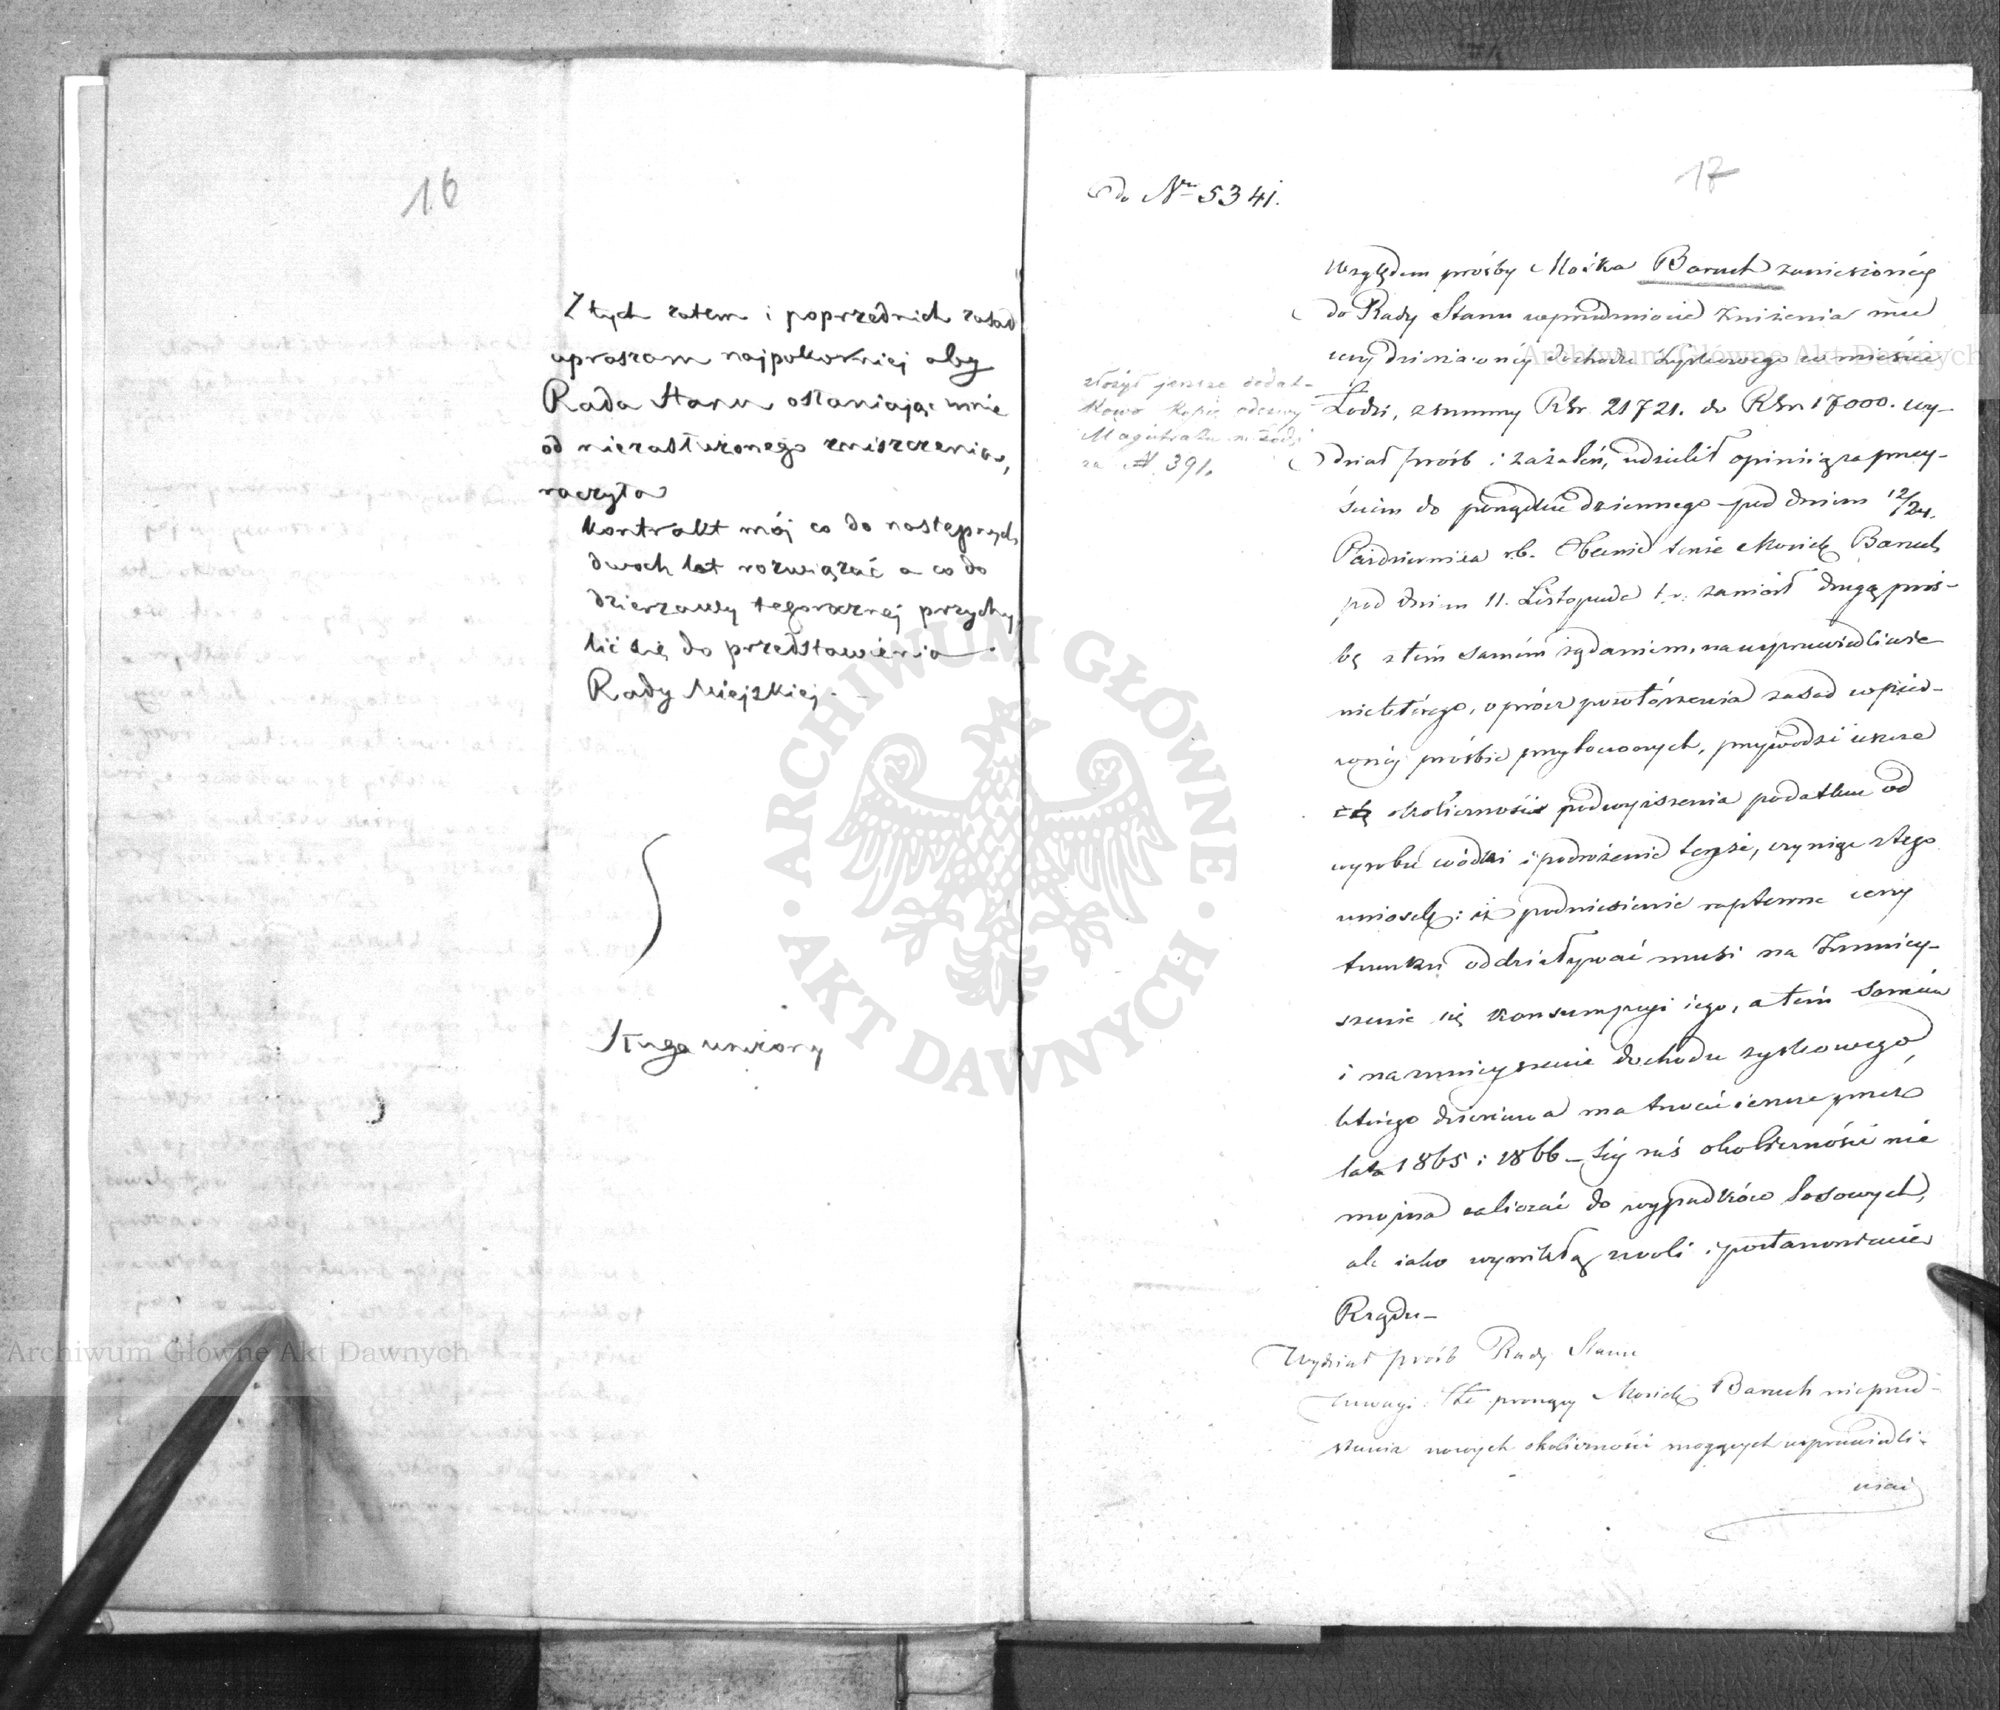 16
Z tych zatem i poprzednich zasad
upraszam najpokorniej aby
Rada Stanu osłaniając mnie
od niezasłużonego zniszczenia,
raczyła
kontrakt mój co do następnych
dwoch lat rozwiązać a co do
dzierzawy tegorocznej przychy
lić się do przedstawienia
Rady Miejskiej.
Sługa uniżony
17
do Nru 5341.
Względem prośby Mośka Baruch zaniesionéj
do Rady Stanu w przedmiocie zniżenia mu
ceny dzierżawnéj dochodu szynkowego w mieście
Łodzi, z summy RSr. 21721. do RSr 17000. Wy-
dział próśb i zażaleń, udzielił opinią za przej-
ściem do porządku dziennego pod dniem 12/24.
Października r.b. Obecnie tenże Mosiek Baruch
pod dniem 11. Listopada t.r. zaniósł drugą proś-
bę z tém samém żądaniem, na usprawiedliwie
nie którego, oprócz powtórzenia zasad w pierw-
széj prośbie przytoczonych, przywodzi
okoliczność podwyższenia podatku od
wyrobu wódki i podrożenie tejże, czyniąc z tego
wniosek: iż podniesienie raptowne ceny
trunku oddziaływać musi na zmniej-
szenie się konsumpcyi jego, a tém samém
i na zmniejszenie dochodu szynkowego,
którego dzierżawa ma trwać jeszcze przez
lata 1865 i 1866 – Téj zaś okoliczności nie
można zaliczać do wypadków losowych,
ale jako wynikłą z woli i postanowienia
Rządu –
złożył jeszcze dodat-
kowo kopię odezwy
Magistratu m. Łodzi
za N. 391.
Wydział próśb Rady Stanu
zuwagi: Że proszący Mosiek Baruch nieprzed-
stawia nowych okoliczności mogących usprawiedli-
wiać
ARCHIWUM GŁÓWNE
AKT DAWNYCH
Archiwum Główne Akt Dawnych
Archiwum Główne Akt Dawnych